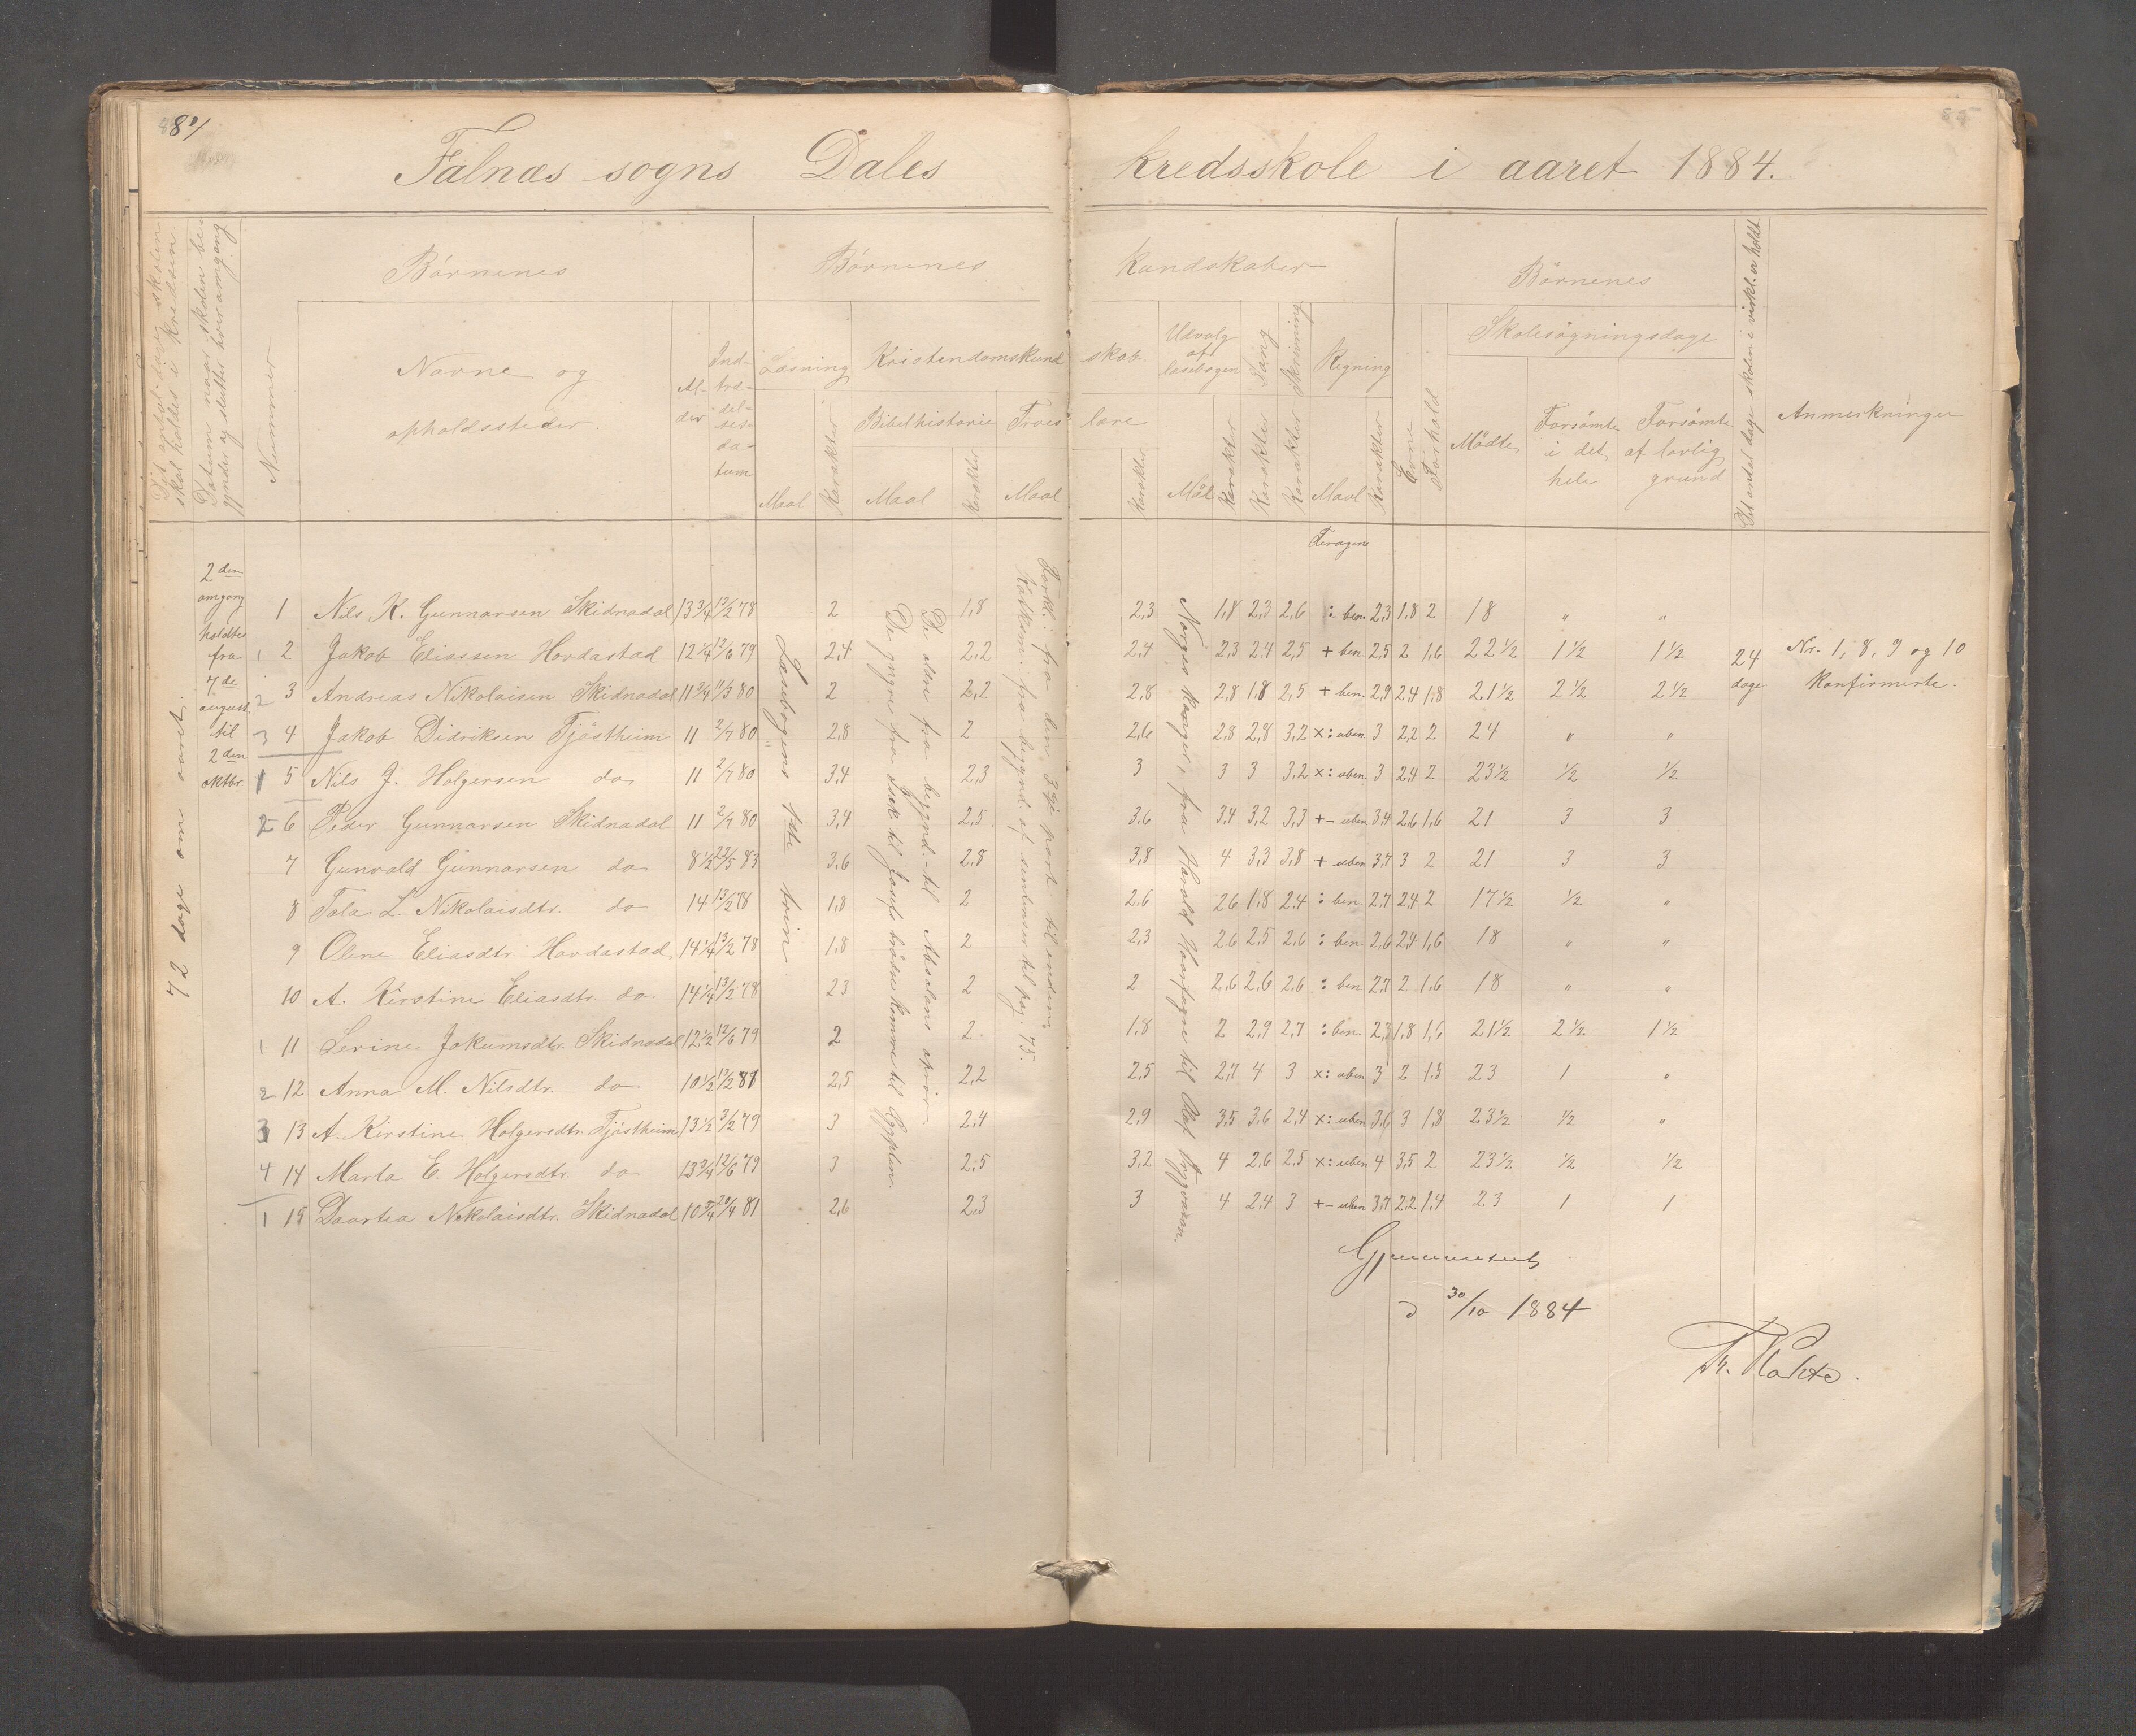 84
85
Falnæs sogns Dales kredsskole i aaret 1884.
Det antal dage skolen skal holdes i kredsen.
Datum naar skolen begynder og slutter hver omgang
Nummer
Børnenes
Navne og opholdssteder.
Alder
Indtrædelsesdatum
Børnenes Kundskaber
Læsning
Maal
Karakter
Kristendomskundskab
Bibelhistorie
Maal
Karakter
Troeslære
Maal
Karakter
Udvalg af læsebogen
Mål
Karakter
Sang
Karakter
Skrivning
Karakter
Regning
Maal
Karakter
Børnenes
Evne
Forhold
Skolesøgningsdage
Mødte
Forsømte i det hele
Forsømte af lovlig grund
Det antal dage skolen i virkl. er holdt
Anmerkninger
72 dage om aaret.
2den omgang holdtes fra 7de august til 2den oktbr.
Læsebogens 1ste trin
De ældre fra begynd. til Absalons oprør
De yngre fra Isak til Josefs brødre komme til Ægypten.
Forkl.: fra den 3die part til enden.
Katkism. fra begynd. af sentenser til pag. 75.
Norges Konger, fra Harald Haarfagre til Olaf Trygvason.
1 Nils K. Gunnarsen Skidnadal 13 3/4 13/2 78 2 1,8 2,3 1,8 2,3 2,6 : ben. 2,3 1,8 2 18 " "
1 2 Jakob Eliassen Hovdastad 12 1/4 12/6 79 2,4 2,2 2,4 2,3 2,4 2,5 + ben 2,5 2 1,6 22 1/2 1 1/2 1 1/2
24 dage
Nr. 1, 8, 9 og 10 Konfirmerte.
2 3 Andreas Nikolaisen Skidnadal 11 3/4 11/3 80 2 2,2 2,8 2,8 1,8 2,5 + ben. 2,9 2,4 1,8 21 1/2 2 1/2 2 1/2
3 4 Jakob Didriksen Tjøstheim 11 2/7 80 2,8 2 2,6 2,8 2,8 3,2 x: uben. 3 2,2 2 24 " "
1 5 Nils J. Holgersen do 11 2/7 80 3,4 2,3 3 3 3 3,2 x: uben. 3 2,4 2 23 1/2 1/2 1/2
2 6 Peder Gunnarsen Skidnadal 11 2/7 80 3,4 2,5 3,6 3,4 3,2 3,3 +- uben 3,4 2,6 1,6 21 3 3
7 Gunvald Gunnarsen do 8 1/2 22/5 83 3,6 2,8 3,8 4 3,3 3,8 + uben 3,7 3 2 21 3 3
8 Tala L. Nikolaisdtr. do 14 13/2 78 1,8 2 2,6 2,6 1,8 2,4 : ben 2,7 2,4 2 17 1/2 1/2 "
9 Olene Eliasdtr. Hovdastad 14 1/4 13/2 78 1,8 2 2,3 2,6 2,5 2,6 : ben. 2,6 2,4 1,6 18 " "
10 A. Kirstine Eliasdtr. do 14 1/4 13/2 78 2,3 2 2 2,6 2,6 2,6 : ben 2,7 2 1,6 18 " "
1 11 Serine Jakumsdtr. Skidnadal 12 1/2 12/6 79 2 2 1,8 2 2,9 2,7 : ben. 2,3 1,8 1,6 21 1/2 2 1/2 1 1/2
2 12 Anna M. Nilsdtr. do 10 1/2 17/2 81 2,5 2,2 2,5 2,7 4 3 x: uben 3 2 1,5 23 1 "
3 13 A. Kirstine Holgersdtr. Tjøstheim 13 1/2 3/2 79 3 2,4 2,9 3,5 3,6 2,4 x: uben 3,6 3 1,8 23 1/2 1/2 "
4 14 Marta E. Holgersdtr. do 13 3/4 12/6 79 3 2,5 3,2 4 2,6 2,5 x: uben 4 3,5 2 23 1/2 1/2 1/2
1 15 Daartea Nikolaisdtr. Skidnadal 10 3/4 20/4 81 2,6 2,3 3 4 2,4 3 +- uben 3,7 2,2 1,4 23 1 1
Gjennemset
d 30/10 1884